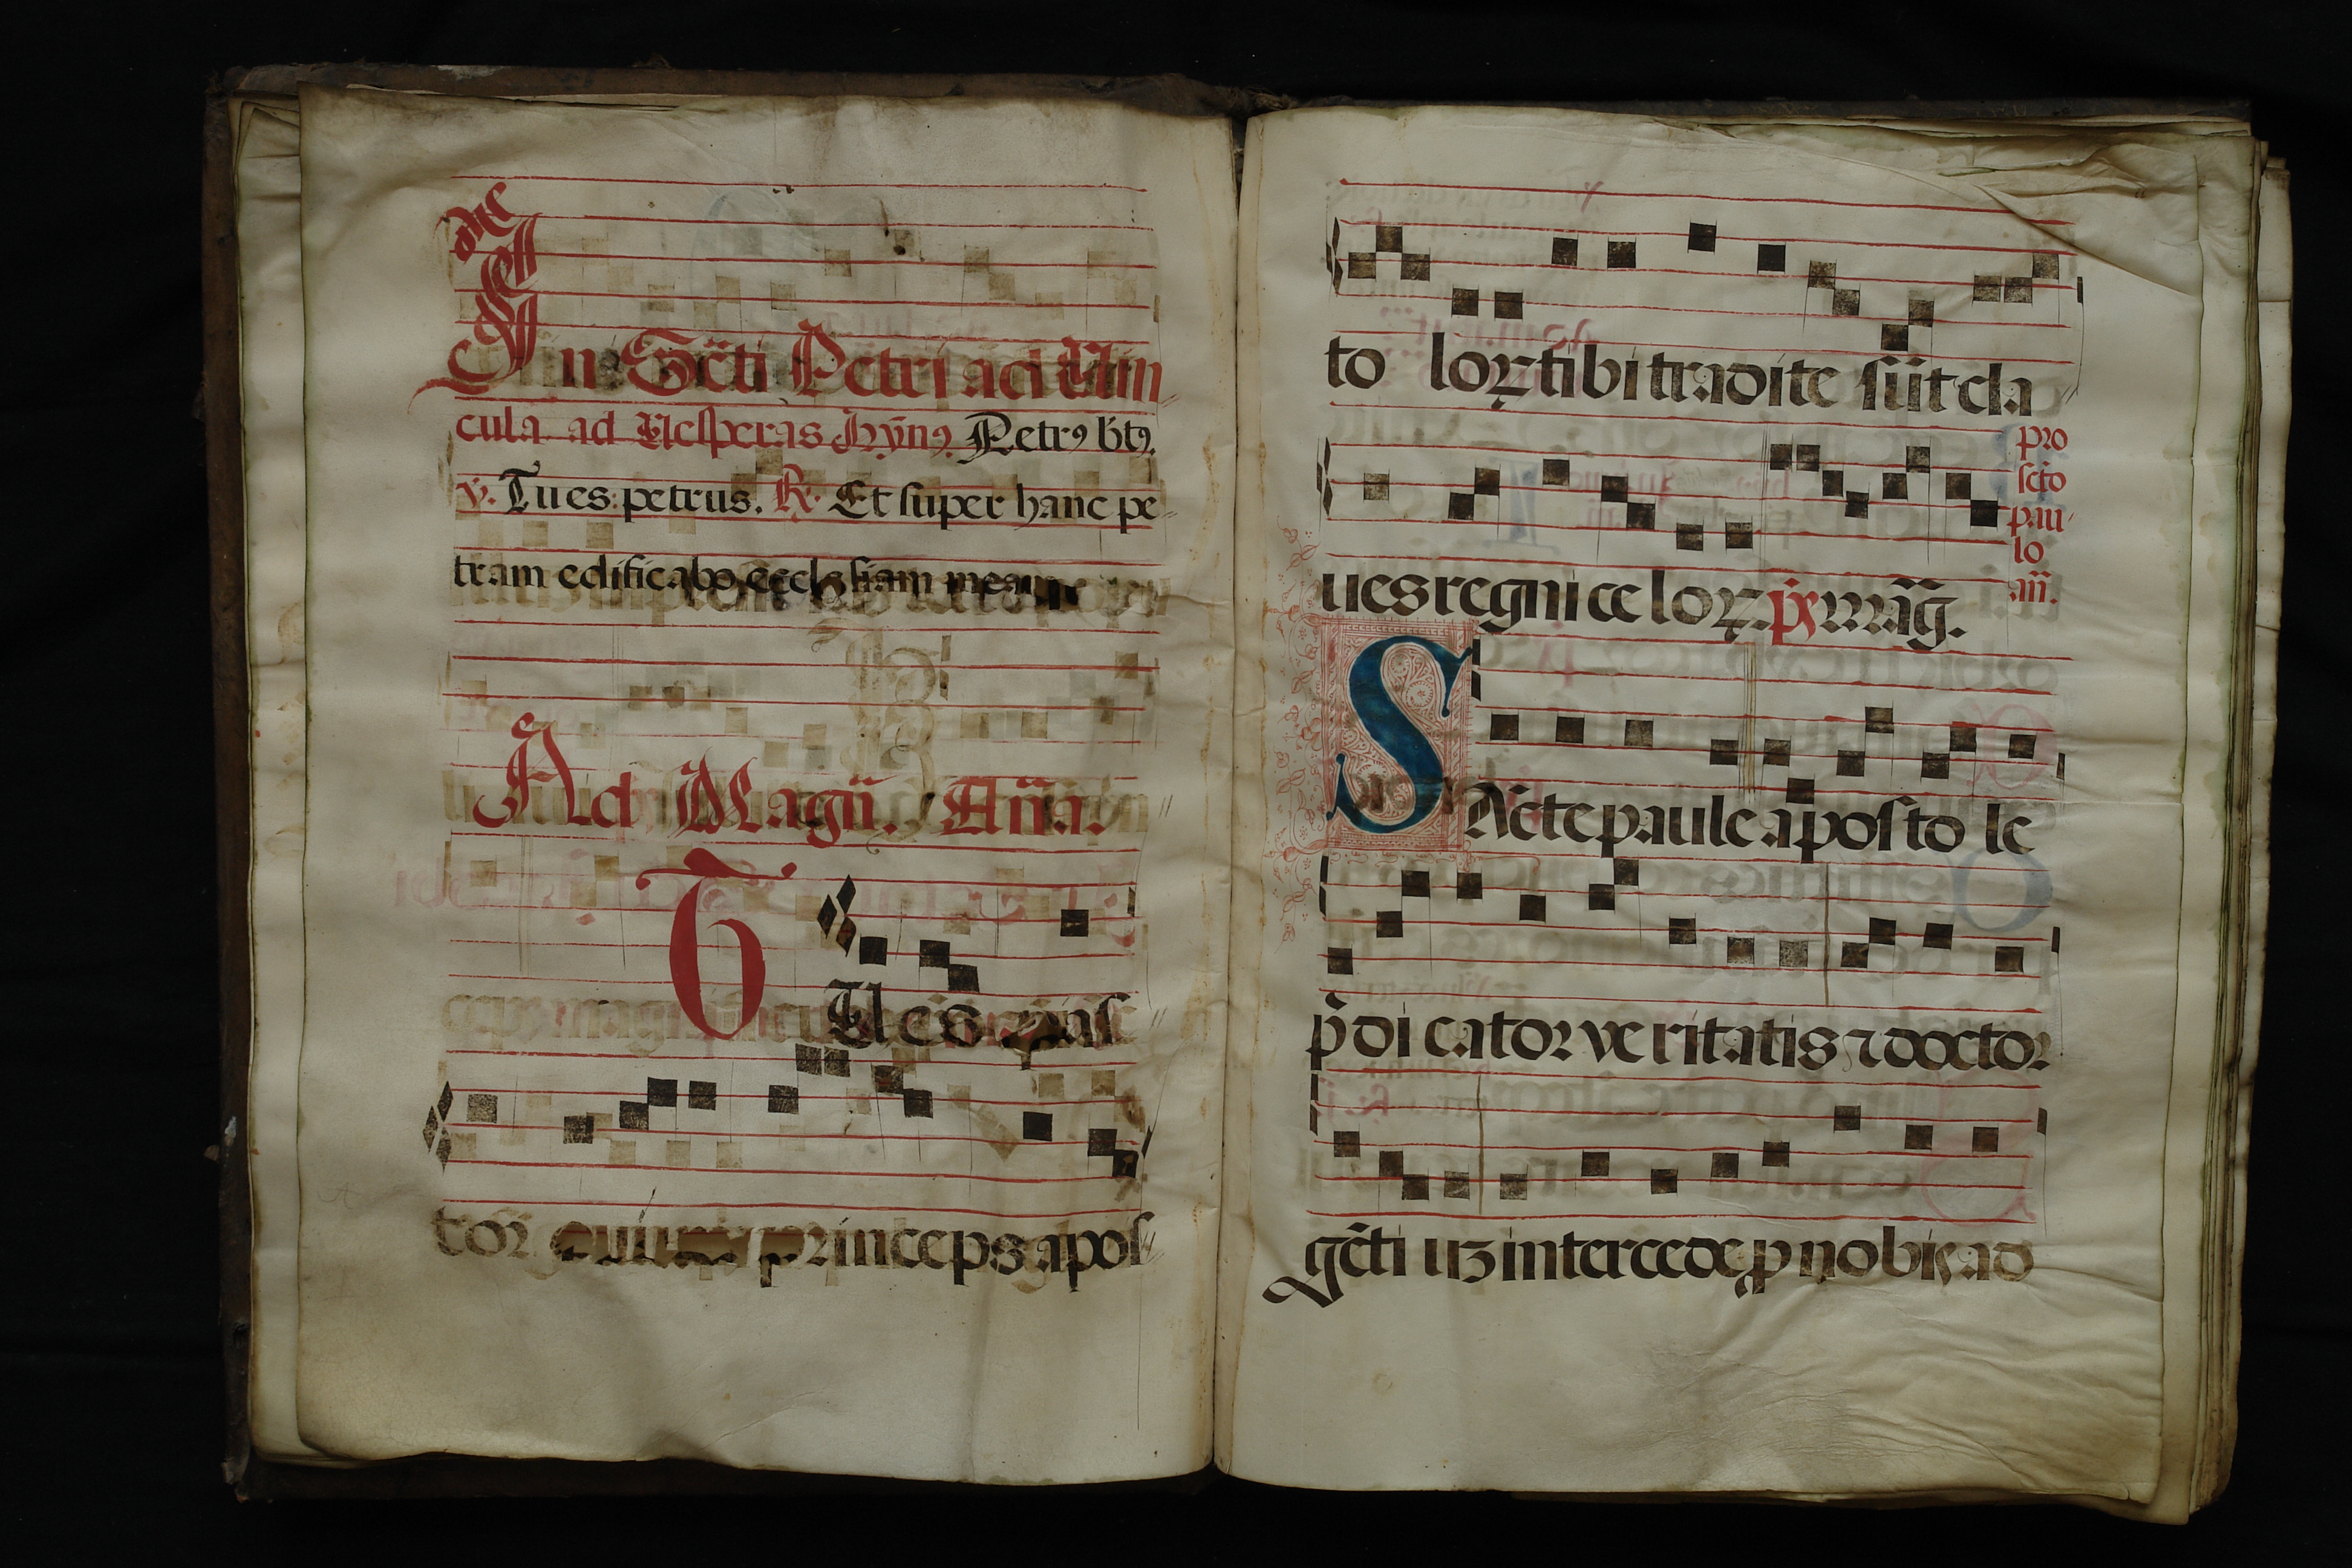 In Sc̃ti Petri ad Uin
cula ad Uesperas Hỹnꝰ. Petrꝰ bt̃ꝰ.
℣. Tu es petrus. ℟. Et super hanc pe
tram edificabo ecclesiam meam
Ad Magñ. Añã.
TU es pas
tor princeps apos
to loꝝ tibi tradite sũt cla
ues regni celoꝝ. p̃s mag̃.
pro
sc̃to
pau
lo
añ.
SAc̃te paule aposto le
p̃dicator veritatis ⁊ doctor
gẽtiuʒ intercede ꝓ nobis ad